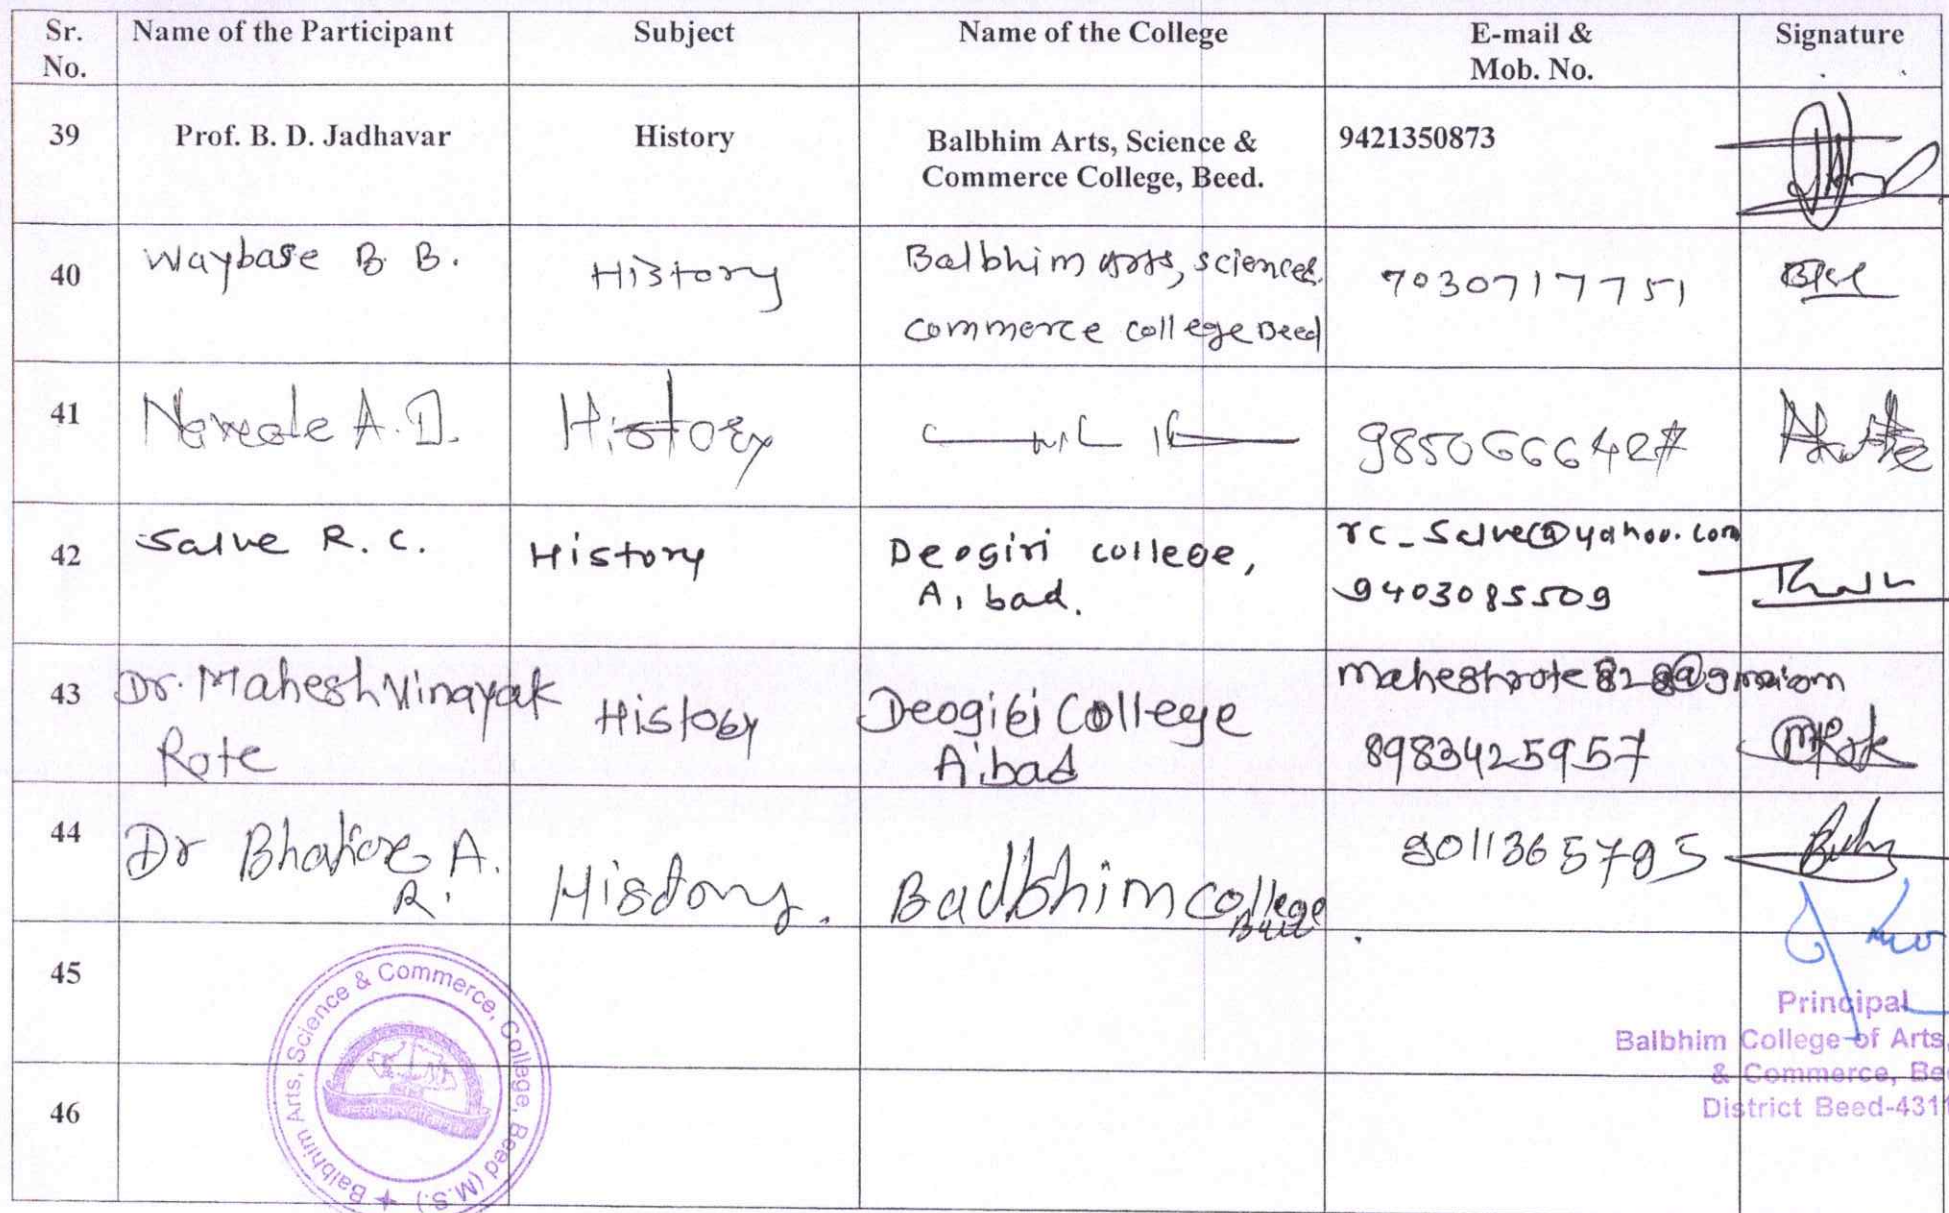 Sr. No. Name of the Participant Subject Name of the College E-mail & Mob. No. Signature
39 Prof. B. D. Jadhavar History Balbhim Arts, Science & Commerce College, Beed. 9421350873
40 Waybase B. B. History Balbhim Arts, science & commerce college Beed 7030717751
41 A. D. History
42 Salve R. C. History Deogiri college, A, bad. rc_salve@yahoo.com 9403085509
43 Dr. Mahesh Vinayak Rote History Deogiri College A,bad 8983425957
44 Dr A. R. History. Balbhim College
45
46
Balbhim Arts, Science & Commerce, College, Beed (M.S.)
Principal
Balbhim College of Arts,
& Commerce,
District Beed-